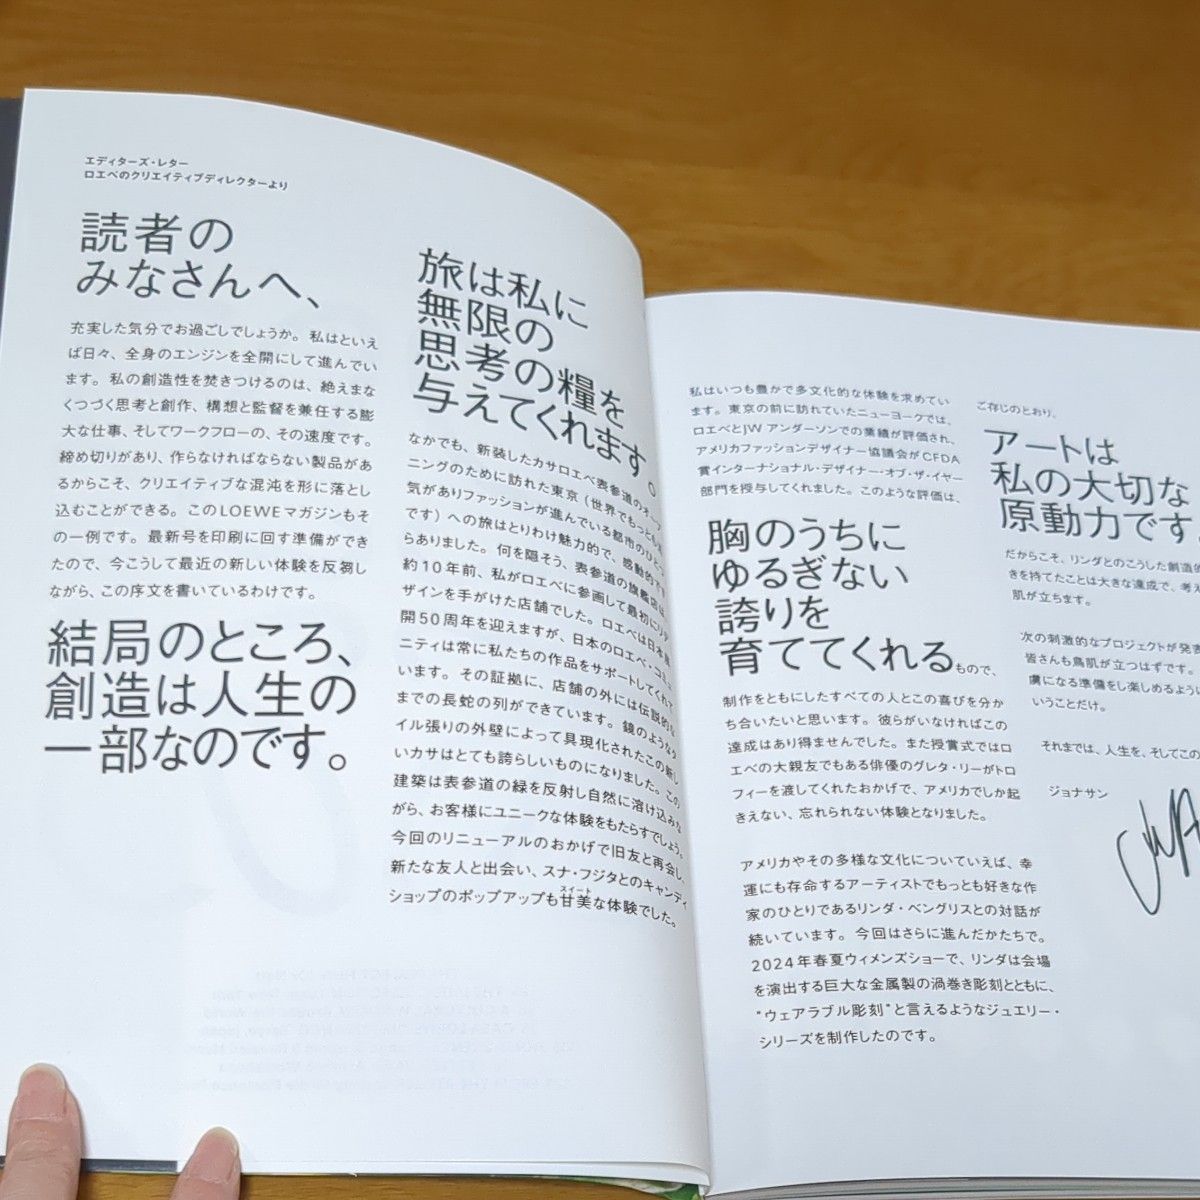 エディターズ・レター
ロエベのクリエイティブディレクターより
読者の
みなさんへ、
充実した気分でお過ごしでしょうか。私はといえ
ば日々、全身のエンジンを全開にして進んでい
ます。私の創造性を焚きつけるのは、絶えまな
くつづく思考と創作、構想と監督を兼任する膨
大な仕事、そしてワークフローの、その速度です。
締め切りがあり、作らなければならない製品があ
るからこそ、クリエイティブな混沌を形に落とし
込むことができる。このLOEWEマガジンもそ
の一例です。最新号を印刷に回す準備ができ
たので、今こうして最近の新しい体験を反芻し
ながら、この序文を書いているわけです。
結局のところ、
創造は人生の
一部なのです。
旅は私に
無限の
思考の糧を
与えてくれます。
なかでも、新装したカサロエベ表参道のオープ
ニングのために訪れた東京（世界でもっとも活
気がありファッションが進んでいる都市のひとつ
です）への旅はとりわけ魅力的で、感動的です
らありました。何を隠そう、表参道の旗艦店は
約10年前、私がロエベに参画して最初にデ
ザインを手がけた店舗でした。ロエベは日本展
開50周年を迎えますが、日本のロエベ・コミュ
ニティは常に私たちの作品をサポートしてくれて
います。その証拠に、店舗の外には伝説的な
までの長蛇の列ができています。鏡のようなタ
イル張りの外壁によって具現化されたこの新し
いカサはとても誇らしいものになりました。この
建築は表参道の緑を反射し自然に溶け込みな
がら、お客様にユニークな体験をもたらすでしょう。
今回のリニューアルのおかげで旧友と再会し、
新たな友人と出会い、スナ・フジタとのキャンディ
ショップのポップアップも甘美な体験でした。
スイート
私はいつも豊かで多文化的な体験を求めてい
ます。東京の前に訪れていたニューヨークでは、
ロエベとJW アンダーソンでの業績が評価され、
アメリカファッションデザイナー協議会がCFDA
賞インターナショナル・デザイナー・オブ・ザ・イヤー
部門を授与してくれました。このような評価は、
胸のうちに
ゆるぎない
誇りを
育ててくれるもので、
制作をともにしたすべての人とこの喜びを分か
ち合いたいと思います。彼らがいなければこの
達成はあり得ませんでした。また授賞式ではロ
エベの大親友でもある俳優のグレタ・リーがトロ
フィーを渡してくれたおかげで、アメリカでしか起
きえない、忘れられない体験となりました。
アメリカやその多様な文化についていえば、幸
運にも存命するアーティストでもっとも好きな作
家のひとりであるリンダ・ベングリスとの対話が
続いています。今回はさらに進んだかたちで。
2024年春夏ウィメンズショーで、リンダは会場
を演出する巨大な金属製の渦巻き彫刻とともに、
“ウェアラブル彫刻”と言えるようなジュエリー・
シリーズを制作したのです。
ご存じのとおり、
アートは
私の大切な
原動力です。
だからこそ、リンダとのこうした創造的
きを持てたことは大きな達成で、考え
肌が立ちます。
次の刺激的なプロジェクトが発表
皆さんも鳥肌が立つはずです。
虜になる準備をし楽しめるよう
いうことだけ。
それまでは、人生を、そしてこの
ジョナサン